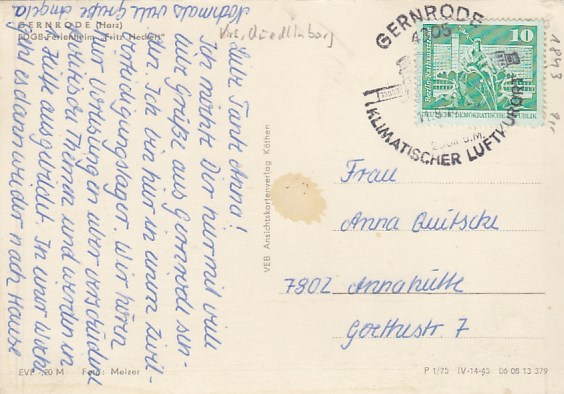 GERNRODE (Harz)
FDGB-Ferienheim „Fritz Heckert"
Krs. Quedlinburg
Liebe Tante Anna!
Ich möchte Dir hiermit viele
liebe Grüße aus Gernrode sen-
den. Ich bin hier in einem Zivil-
verteidigungslager. Wir hören
hier Vorlesungen über verschiedene
politische Themen und werden in
1. Hilfe ausgebildet. In einer Woche
geht es dann wieder nach Hause
Nochmals viele Grüße Angela
VEB Ansichtskartenverlag Köthen
GERNRODE
4305
KLIMATISCHER LUFTKURORT
10
Berlin-Rathausstraße
DEUTSCHE DEMOKRATISCHE REPUBLIK
1843
Frau
Anna Quitschke
7802 Annahütte
Goethestr. 7
EVP -,20 M Foto: Melzer
P 1/75 IV-14-45 06 08 13 379